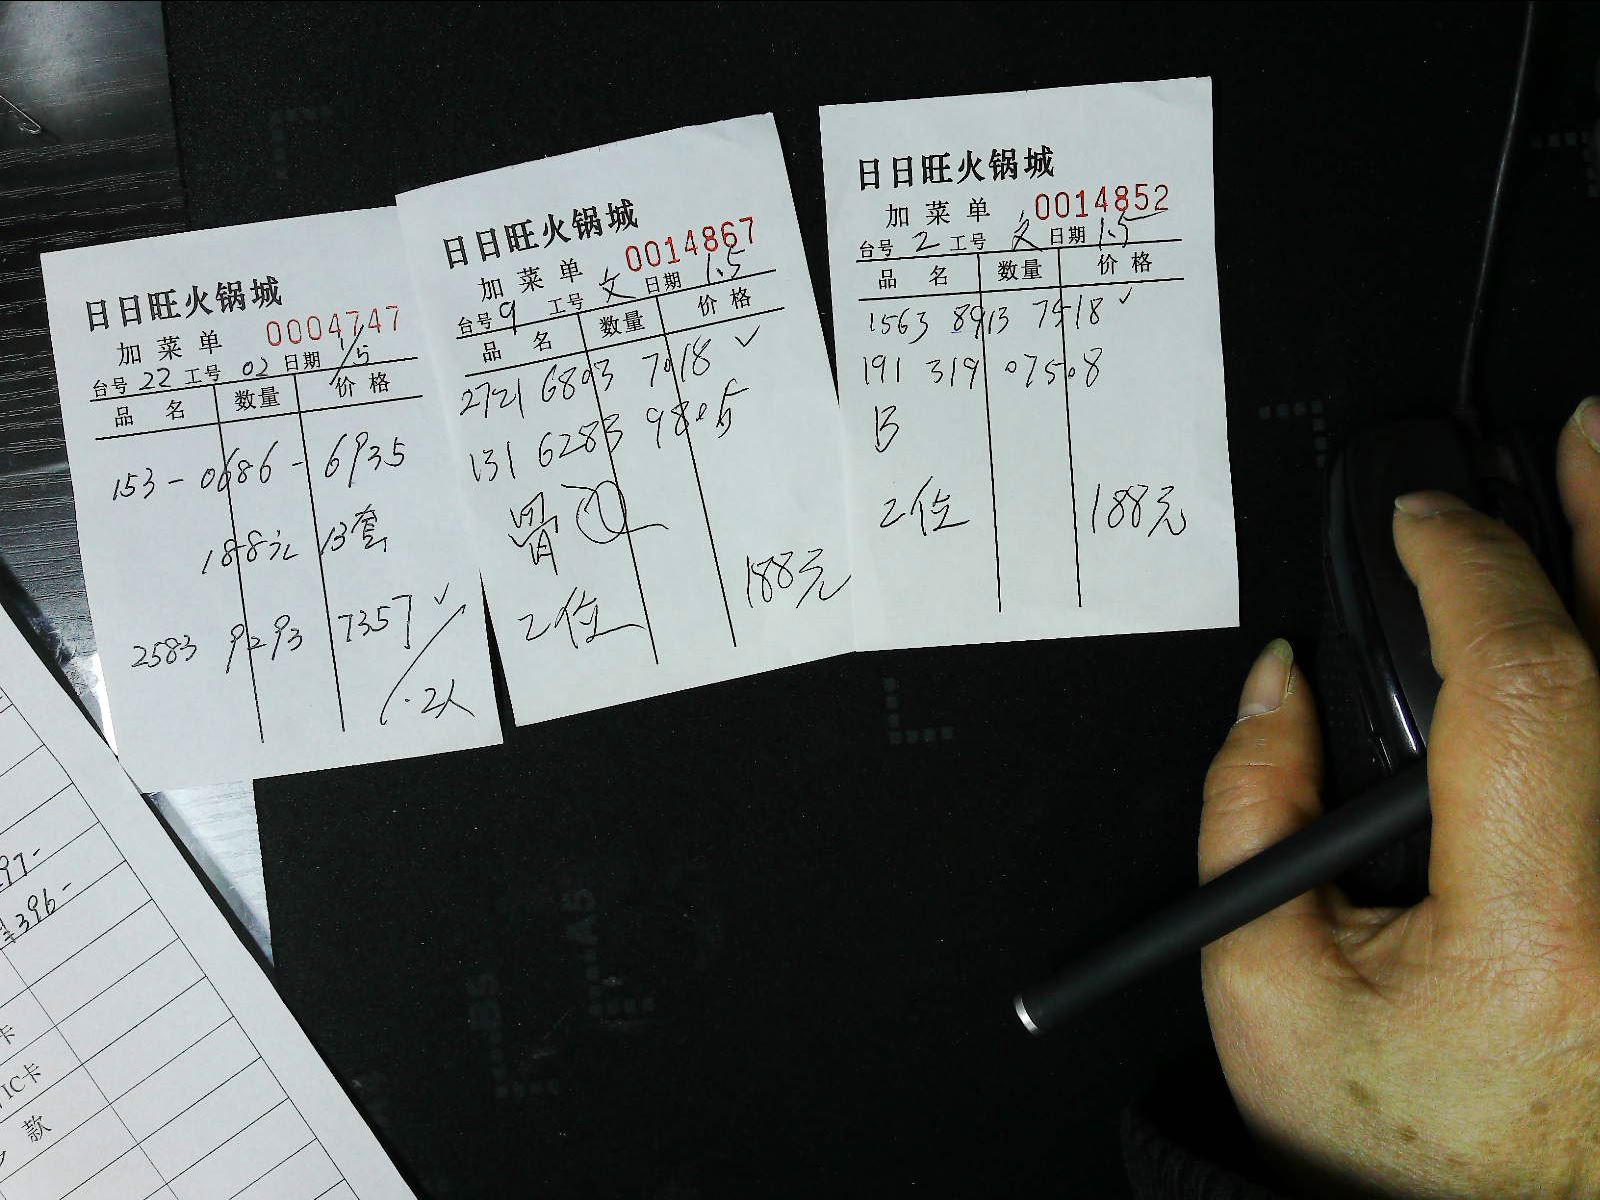 日日旺火锅城
加菜单 0004747
台号 22 工号 02 日期 1/5
品名 数量 价格
153-0686-6935
188元 B套
2583 9293 7357 ✓
2人
日日旺火锅城
加菜单 0014867
台号 9 工号 文 日期 1.5
品名 数量 价格
2721 6803 7018 ✓
131 6283 98
2位
188元
日日旺火锅城
加菜单 0014852
台号 2 工号 文 日期 1.5
品名 数量 价格
1563 8913 7518 ✓
191 319 07508
B
2位 188元
97-
396-
卡
IC卡
款
B5
A5